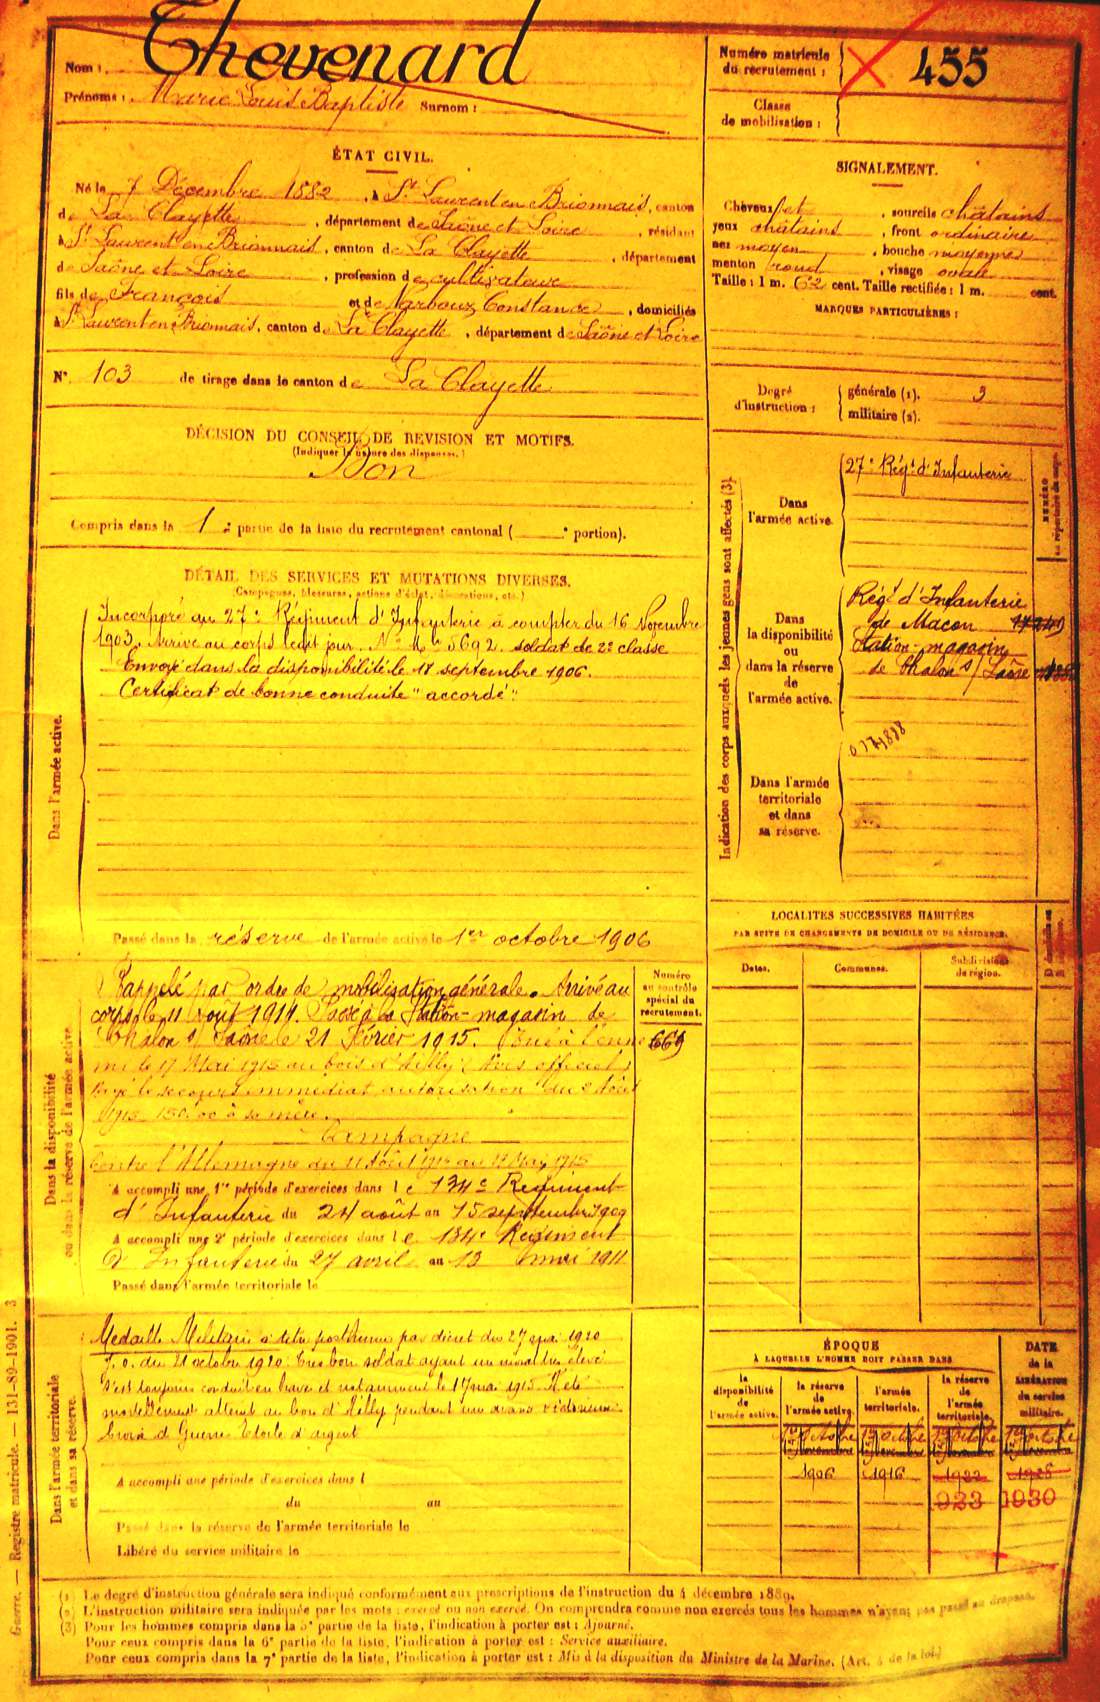 Nom : Thevenard
Prénoms : Marie Louis Baptiste Surnom :
Numéro matricule du recrutement : 455
Classe de mobilisation :
ÉTAT CIVIL.
Né le 7 Décembre 1882, à St Laurent en Brionnais, canton
de La Clayette, département de Saône et Loire, résidant
à St Laurent en Brionnais, canton de La Clayette, département
de Saône et Loire, profession de cultivateur
fils de François et de Narboux Constance, domiciliés
à St Laurent en Brionnais, canton de La Clayette, département de Saône et Loire
N° 103 de tirage dans le canton de La Clayette
SIGNALEMENT.
Cheveux et, sourcils châtains
yeux châtains, front ordinaire
nez moyen, bouche moyenne
menton rond, visage ovale
Taille : 1 m. 62 cent. Taille rectifiée : 1 m. cent.
MARQUES PARTICULIÈRES :
Degré d'instruction : générale (1). 3
militaire (2).
DÉCISION DU CONSEIL DE REVISION ET MOTIFS.
(Indiquer la nature des dispenses.)
Bon
Compris dans la 1e partie de la liste du recrutement cantonal ( e portion).
DÉTAIL DES SERVICES ET MUTATIONS DIVERSES.
(Campagnes, blessures, actions d'éclat, décorations, etc.)
Dans l'armée active.
Incorporé au 27e Régiment d'Infanterie à compter du 16 Novembre
1903. Arrivé au corps ledit jour. No Mle 5692. soldat de 2e classe
Envoyé dans la disponibilité le 18 septembre 1906.
Certificat de bonne conduite "accordé".
Passé dans la réserve de l'armée active le 1er octobre 1906
Indication des corps auxquels les jeunes gens sont affectés (3).
Dans l'armée active.
27e Régt d'Infanterie
Dans la disponibilité ou dans la réserve de l'armée active.
Régt d'Infanterie
de Macon
Station-magasin
de Chalon s/ Saône
Dans l'armée territoriale et dans sa réserve.
LOCALITÉS SUCCESSIVES HABITÉES
PAR SUITE DE CHANGEMENTS DE DOMICILE OU DE RÉSIDENCE.
Dates. Communes. Subdivisions de région.
Dans la disponibilité
ou dans la réserve de l'armée active.
Numéro au contrôle spécial du recrutement.
669
Rappelé par ordre de mobilisation générale. Arrivé au
corps le 11 août 1914. Passé à la Station-magasin de
Chalon s/ Saône le 21 Février 1915. Tué à l'enne
mi le 17 Mai 1915 au bois d'Ailly (Avis officiel)
Payé le secours immédiat autorisation du 2 août
1915 150,00 à sa mère.
Campagne
Contre l'Allemagne du 11 Août 1914 au 17 Mai 1915
A accompli une 1re période d'exercices dans le 134e Régiment
d'Infanterie du 24 août au 15 septembre 1909
A accompli une 2e période d'exercices dans le 134e Régiment
d'Infanterie du 27 avril au 13 mai 1911
Passé dans l'armée territoriale le
Dans l'armée territoriale
et dans sa réserve.
Médaille Militaire à titre posthume par décret du 27 mai 1920
J.O. du 21 octobre 1920. Très bon soldat ayant un moral très élevé
s'est toujours conduit en brave et notamment le 17 mai 1915. A été
mortellement atteint au bois d'Ailly pendant
Croix de Guerre Etoile d'argent
A accompli une période d'exercices dans l
du au
Passé dans la réserve de l'armée territoriale le
Libéré du service militaire le
ÉPOQUE
À LAQUELLE L'HOMME DOIT PASSER DANS
la disponibilité de l'armée active.
la réserve de l'armée active.
l'armée territoriale.
la réserve de l'armée territoriale.
DATE de la LIBÉRATION du service militaire.
1er octobre 1er octobre 1er octobre 1er octobre
1er novembre 1er novembre 1er novembre 1er novembre
1906 1916 1922 1928
923 1930
(1) Le degré d'instruction générale sera indiqué conformément aux prescriptions de l'instruction du 4 décembre 1889.
(2) L'instruction militaire sera indiquée par les mots : exercé ou non exercé. On comprendra comme non exercés tous les hommes n'ayant pas passé au drapeau.
(3) Pour les hommes compris dans la 5e partie de la liste, l'indication à porter est : Ajourné.
Pour ceux compris dans la 6e partie de la liste, l'indication à porter est : Service auxiliaire.
Pour ceux compris dans la 7e partie de la liste, l'indication à porter est : Mis à la disposition du Ministre de la Marine. (Art. 4 de la loi.)
Guerre. — Registre matricule. — 131-89-1901. 3